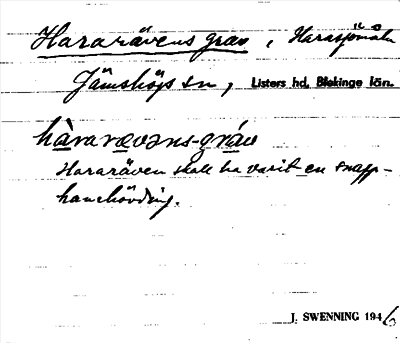 Hararävens grav, Harasjömåla
Jämshögs sn, Listers hd. Blekinge län.
hàrarævəns-gráv
Hararäven skall ha varit en snapp-
hanehövding.
J. SWENNING 1946